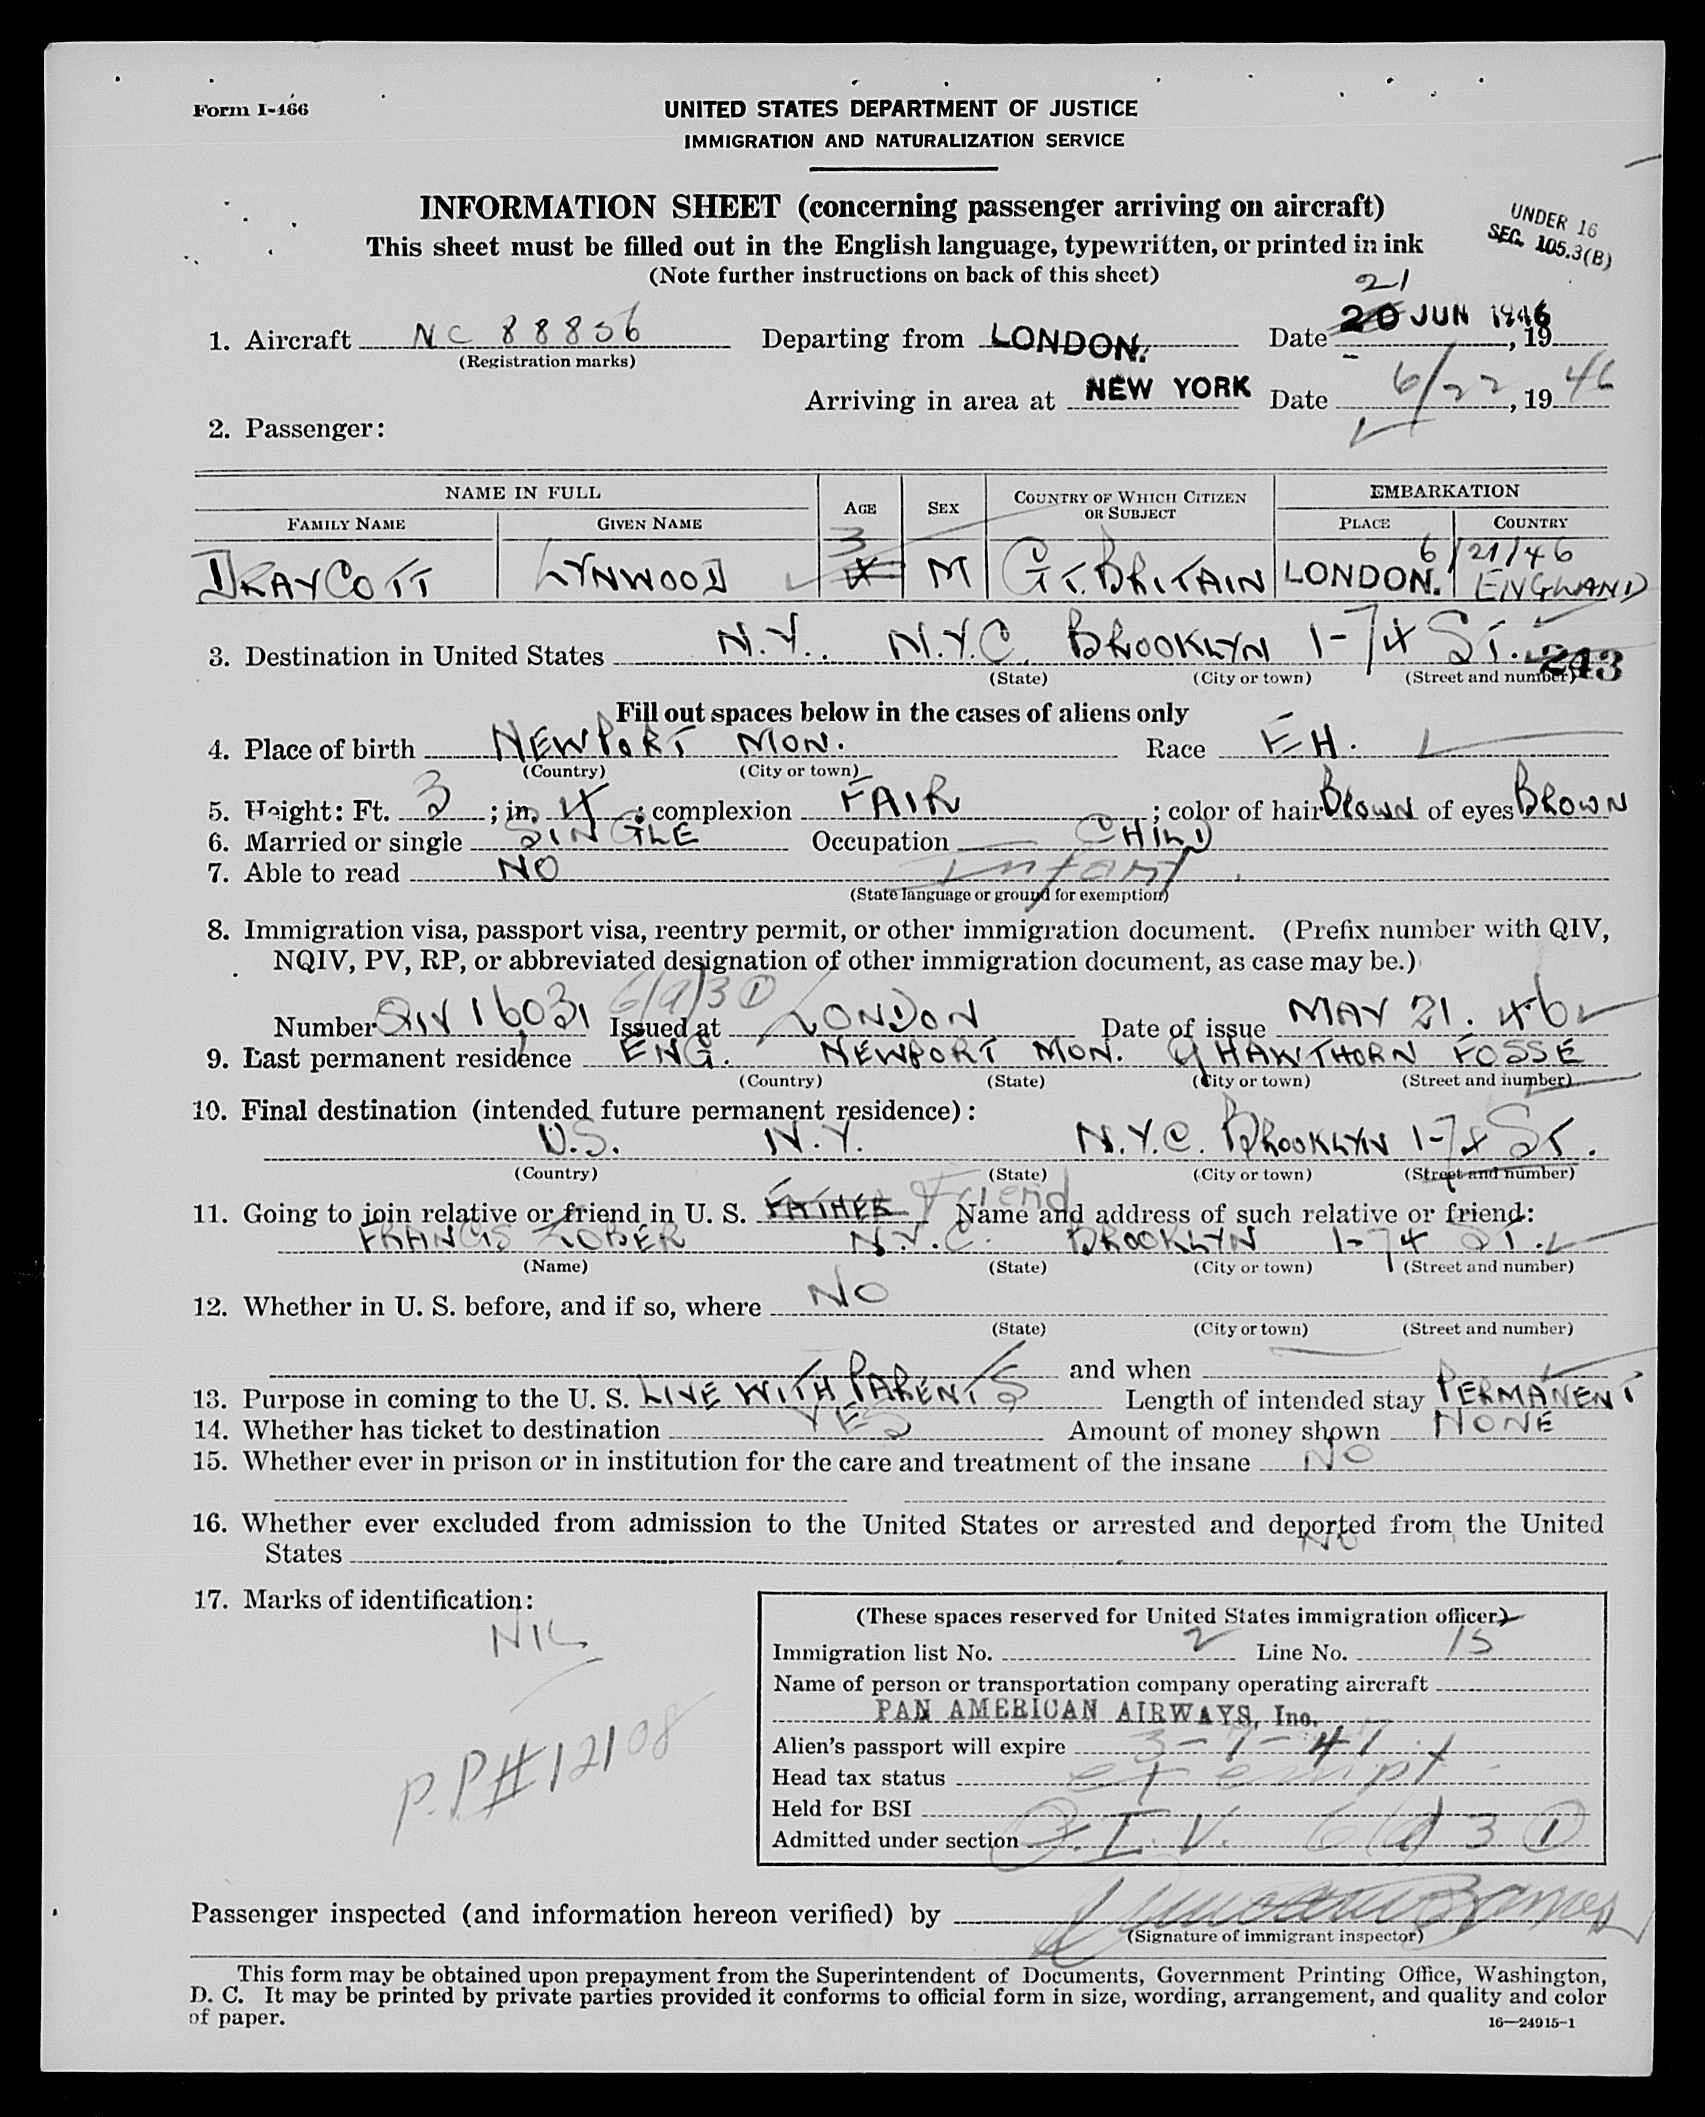 Form I-466
UNITED STATES DEPARTMENT OF JUSTICE
IMMIGRATION AND NATURALIZATION SERVICE
INFORMATION SHEET (concerning passenger arriving on aircraft)
UNDER 16
SEC. 105.3(B)
This sheet must be filled out in the English language, typewritten, or printed in ink
(Note further instructions on back of this sheet)
21
1. Aircraft NC 88856 Departing from LONDON. Date 20 JUN 1946, 19
(Registration marks)
Arriving in area at NEW YORK Date 6/22, 19 46
2. Passenger:
NAME IN FULL AGE SEX COUNTRY OF WHICH CITIZEN OR SUBJECT EMBARKATION
FAMILY NAME GIVEN NAME PLACE COUNTRY
3 6/21/46
DRAYCOTT LYNWOOD 4 M GT. BRITAIN LONDON. ENGLAND
3. Destination in United States N.Y. N.Y.C. BROOKLYN 1-74 ST. 243
(State) (City or town) (Street and number)
Fill out spaces below in the cases of aliens only
4. Place of birth NEWPORT MON. Race EH.
(Country) (City or town)
5. Height: Ft. 3; in. 4; complexion FAIR; color of hair BROWN of eyes BROWN
6. Married or single SINGLE Occupation CHILD
7. Able to read NO infant
(State language or ground for exemption)
8. Immigration visa, passport visa, reentry permit, or other immigration document. (Prefix number with QIV,
NQIV, PV, RP, or abbreviated designation of other immigration document, as case may be.)
6/a/3 D
Number QIV 16031 Issued at LONDON Date of issue MAY 21. 46
9. Last permanent residence ENG. NEWPORT MON. 9 HAWTHORN FOSSE
(Country) (State) (City or town) (Street and number)
10. Final destination (intended future permanent residence):
U.S. N.Y. N.Y.C. BROOKLYN 1-74 ST.
(Country) (State) (City or town) (Street and number)
11. Going to join relative or friend in U. S. FATHER Friend Name and address of such relative or friend:
FRANCIS ZOBER N.Y.C. BROOKLYN 1-74 ST.
(Name) (State) (City or town) (Street and number)
12. Whether in U. S. before, and if so, where NO
(State) (City or town) (Street and number)
and when
13. Purpose in coming to the U. S. LIVE WITH PARENTS Length of intended stay PERMANENT
14. Whether has ticket to destination YES Amount of money shown NONE
15. Whether ever in prison or in institution for the care and treatment of the insane NO
16. Whether ever excluded from admission to the United States or arrested and deported from the United
States NO
17. Marks of identification:
NIL
P.P# 12108
(These spaces reserved for United States immigration officer)
Immigration list No. 2 Line No. 15
Name of person or transportation company operating aircraft
PAN AMERICAN AIRWAYS, Inc.
Alien's passport will expire 3-7-47
Head tax status exempt
Held for BSI
Admitted under section Q.I.V. 6 a 3 D
Passenger inspected (and information hereon verified) by
(Signature of immigrant inspector)
This form may be obtained upon prepayment from the Superintendent of Documents, Government Printing Office, Washington,
D. C. It may be printed by private parties provided it conforms to official form in size, wording, arrangement, and quality and color
of paper.
16—24915-1